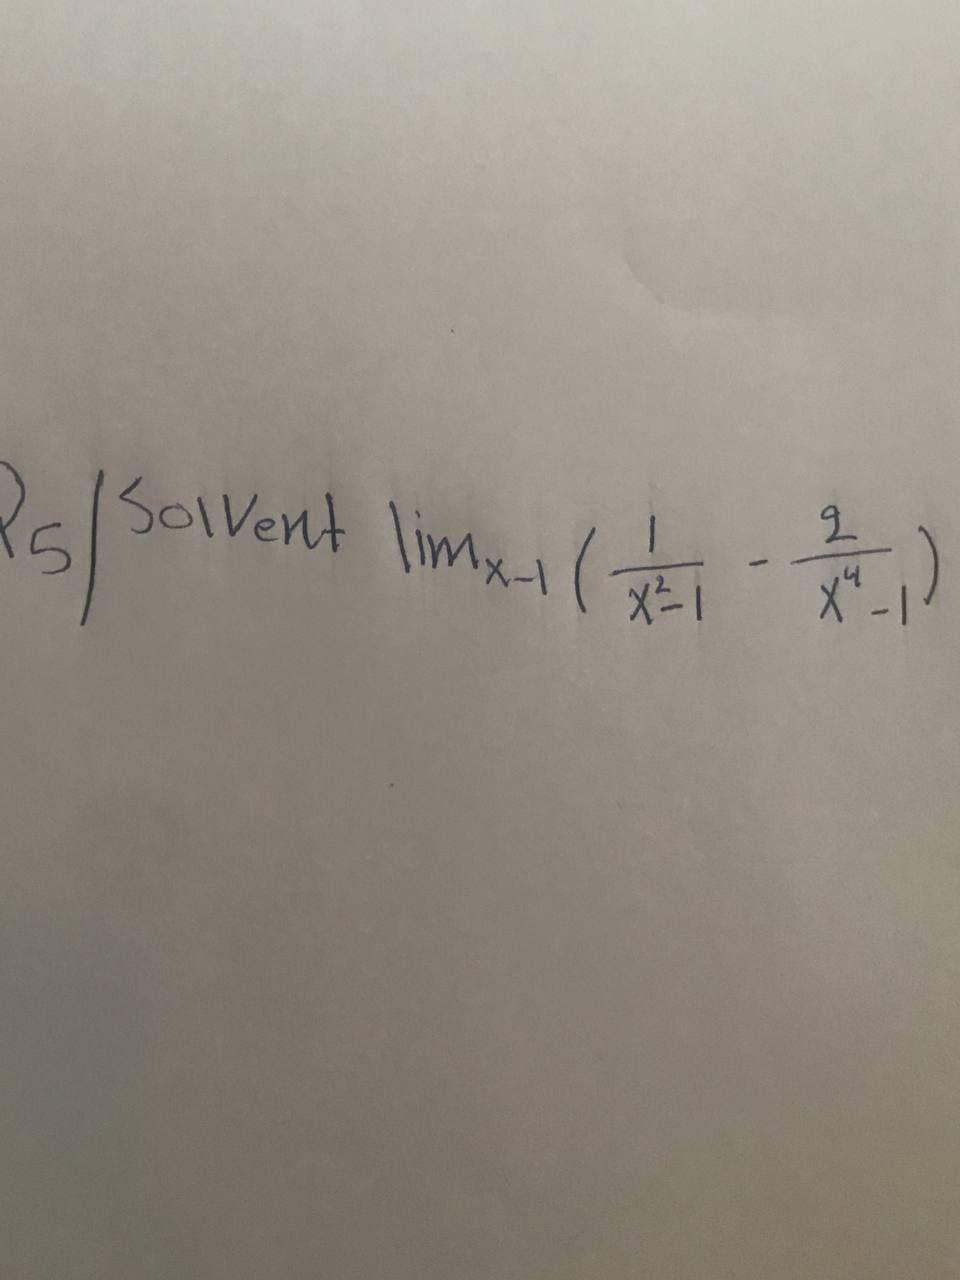 Q5/ Solvent lim x-1 ( 1/x²-1 - 2/x⁴-1 )